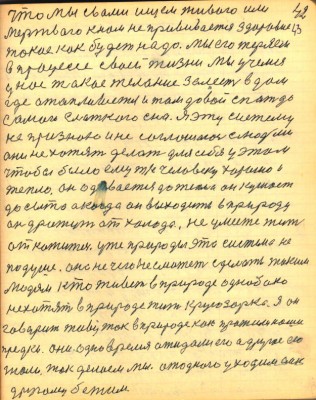 42
что мы с вами ищем живого или
мертваго к нам не прививается здоровие 43
такое как будет надо. Мы его теряем
в процессе своей жизни мы учемся
у нас такое желание залесть в дом
где отапливается и там довой спать до
самого слаткого сна. Я эту систему
не признаю и не соглошаюсь с людми
они не хотят делат для себя у этом
чтобы было ему тут человеку хорошо и
тепло, он одевается до тепла он кушает
до сыта а когда он выходить в природу
он дрижит от холода, не умеет жит
от хотится. уже природы это система не
подуше. она нечего не сможет сделать таким
людям кто живет в природе однобако
не хотят в природе жит кругозорка. Я он
говарит живи так в природе как прожили наши
предки. они одно время ожидали его а другое со
гнали, так делаем мы. от одного уходим а к
другому бежим